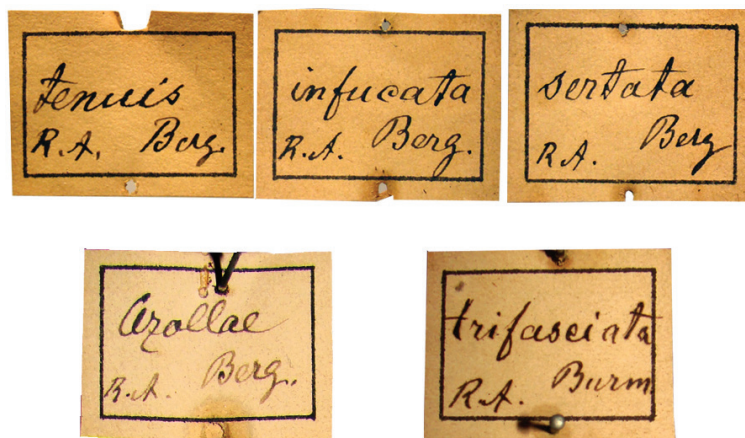 tenuis
R.A. Berg.
infucata
R.A. Berg.
sertata
R.A. Berg
Azollae
R.A. Berg.
trifasciata
R.A. Burm